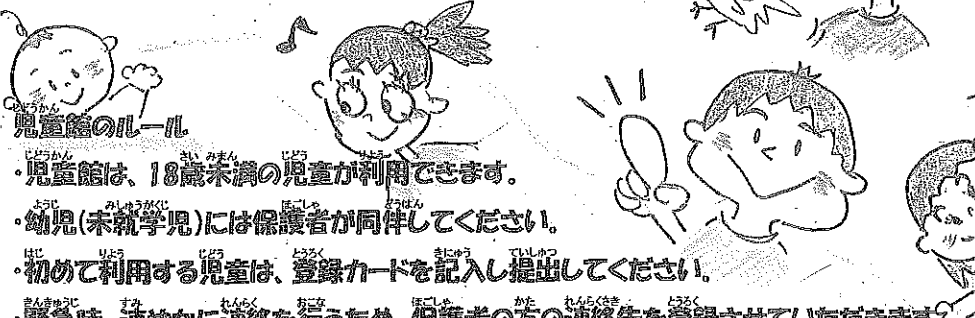 児童館のルール
・児童館は、18歳未満の児童が利用できます。
・幼児(未就学児)には保護者が同伴してください。
・初めて利用する児童は、登録カードを記入し提出してください。
・緊急時、速やかに連絡を行うため、保護者の方の連絡先を登録させていただきます。